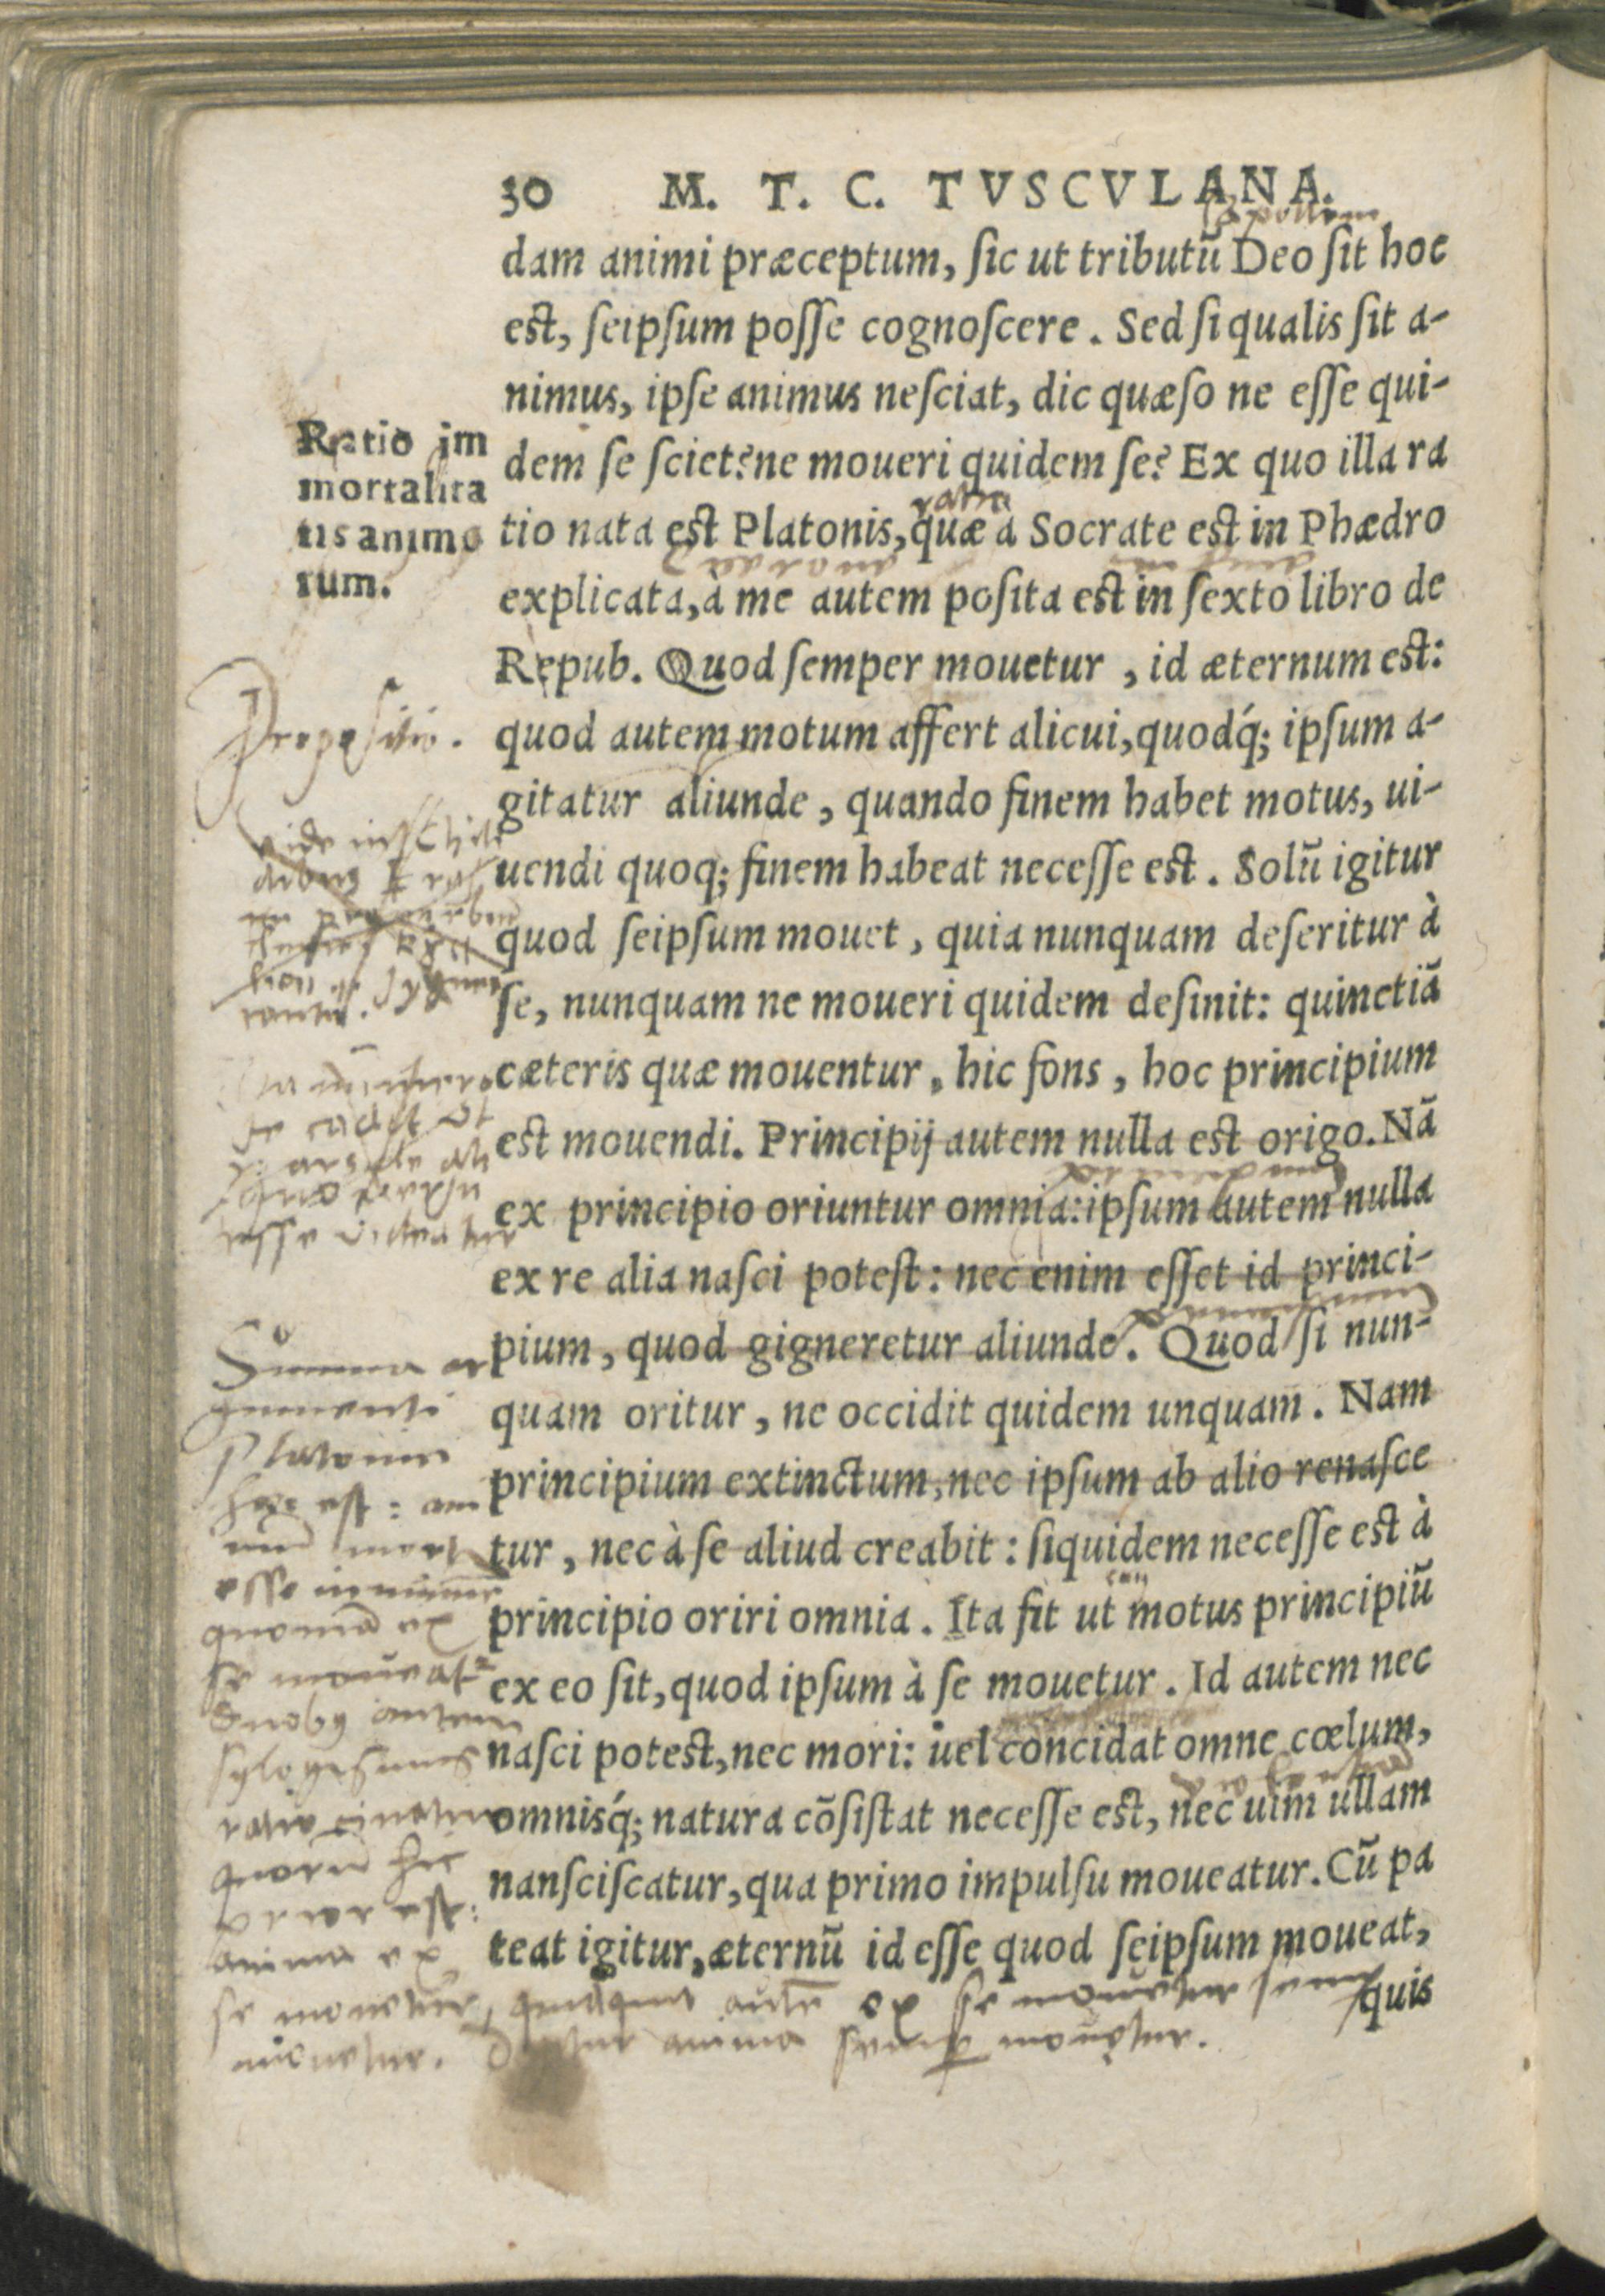 30 M. T. C. TVSCVLANA.
dam animi præceptum, ſic ut tributũ Deo ſit hoc
est, ſeipſum poſſe cognoſcere. Sed ſi qualis ſit a-
nimus, ipſe animus neſciat, dic quæſo ne eſſe qui-
dem ſe ſciet? ne moueri quidem ſe? Ex quo illa ra
tio nata est Platonis, quæ a Socrate est in Phædro
explicata, à me autem poſita est in ſexto libro de
Repub. Quod ſemper mouetur, id æternum est:
quod autem motum affert alicui, quodq́; ipſum a-
gitatur aliunde, quando finem habet motus, ui-
uendi quoq; finem habeat neceſſe est. Solũ igitur
quod ſeipſum mouet, quia nunquam deſeritur à
ſe, nunquam ne moueri quidem deſinit: quinetiã
cæteris quæ mouentur, hic fons, hoc principium
est mouendi. Principij autem nulla est origo. Nã
ex principio oriuntur omnia: ipſum autem nulla
ex re alia naſci poteſt: nec enim eſſet id princi-
pium, quod gigneretur aliunde. Quod ſi nun-
quam oritur, ne occidit quidem unquam. Nam
principium extinctum, nec ipſum ab alio renaſce
tur, nec à ſe aliud creabit: ſiquidem neceſſe est à
principio oriri omnia. Ita fit ut motus principiũ
ex eo ſit, quod ipſum à ſe mouetur. Id autem nec
naſci potest, nec mori: uel concidat omne cœlum,
omnisq́; natura cõſiſtat neceſſe est, nec uim ullam
nanſciſcatur, qua primo impulſu moueatur. Cũ pa
teat igitur, æternũ id eſſe quod ſeipſum moueat,
quis
Ratio im
mortalita
tis animo
rum.
Propoſitio.
Summa ar
gumenti
Platonici
hæc est:
eſſe
quoniã ex
ſe
duobq autem
quorũ
anima ex
ſe mouetur, autẽ ex ſe mouetur
mouetur. anima mouetur.